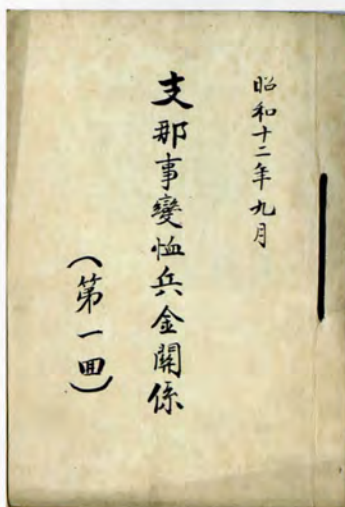 昭和十二年九月
支那事變恤兵金關係
（第一囬）